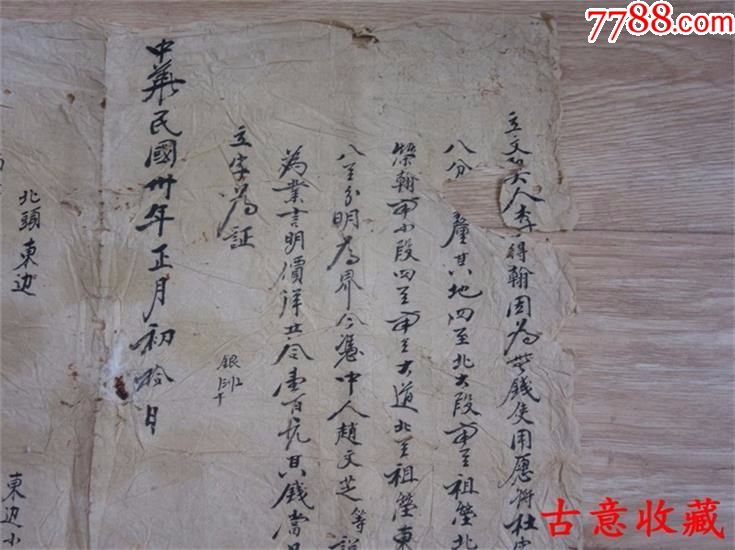 7788.com
立文契人李得翰因為無錢使用愿將杜
八分 釐其地四至北大段南至祖塋北
榮翰南小段四至南至大道北至祖塋東
八至分明為界今憑中人趙文芝等說
為業言明價洋 仟壹百 其錢當
立字為証
銀
中華民國卅年正月初拾日
北頭東边
東边小
古意收藏